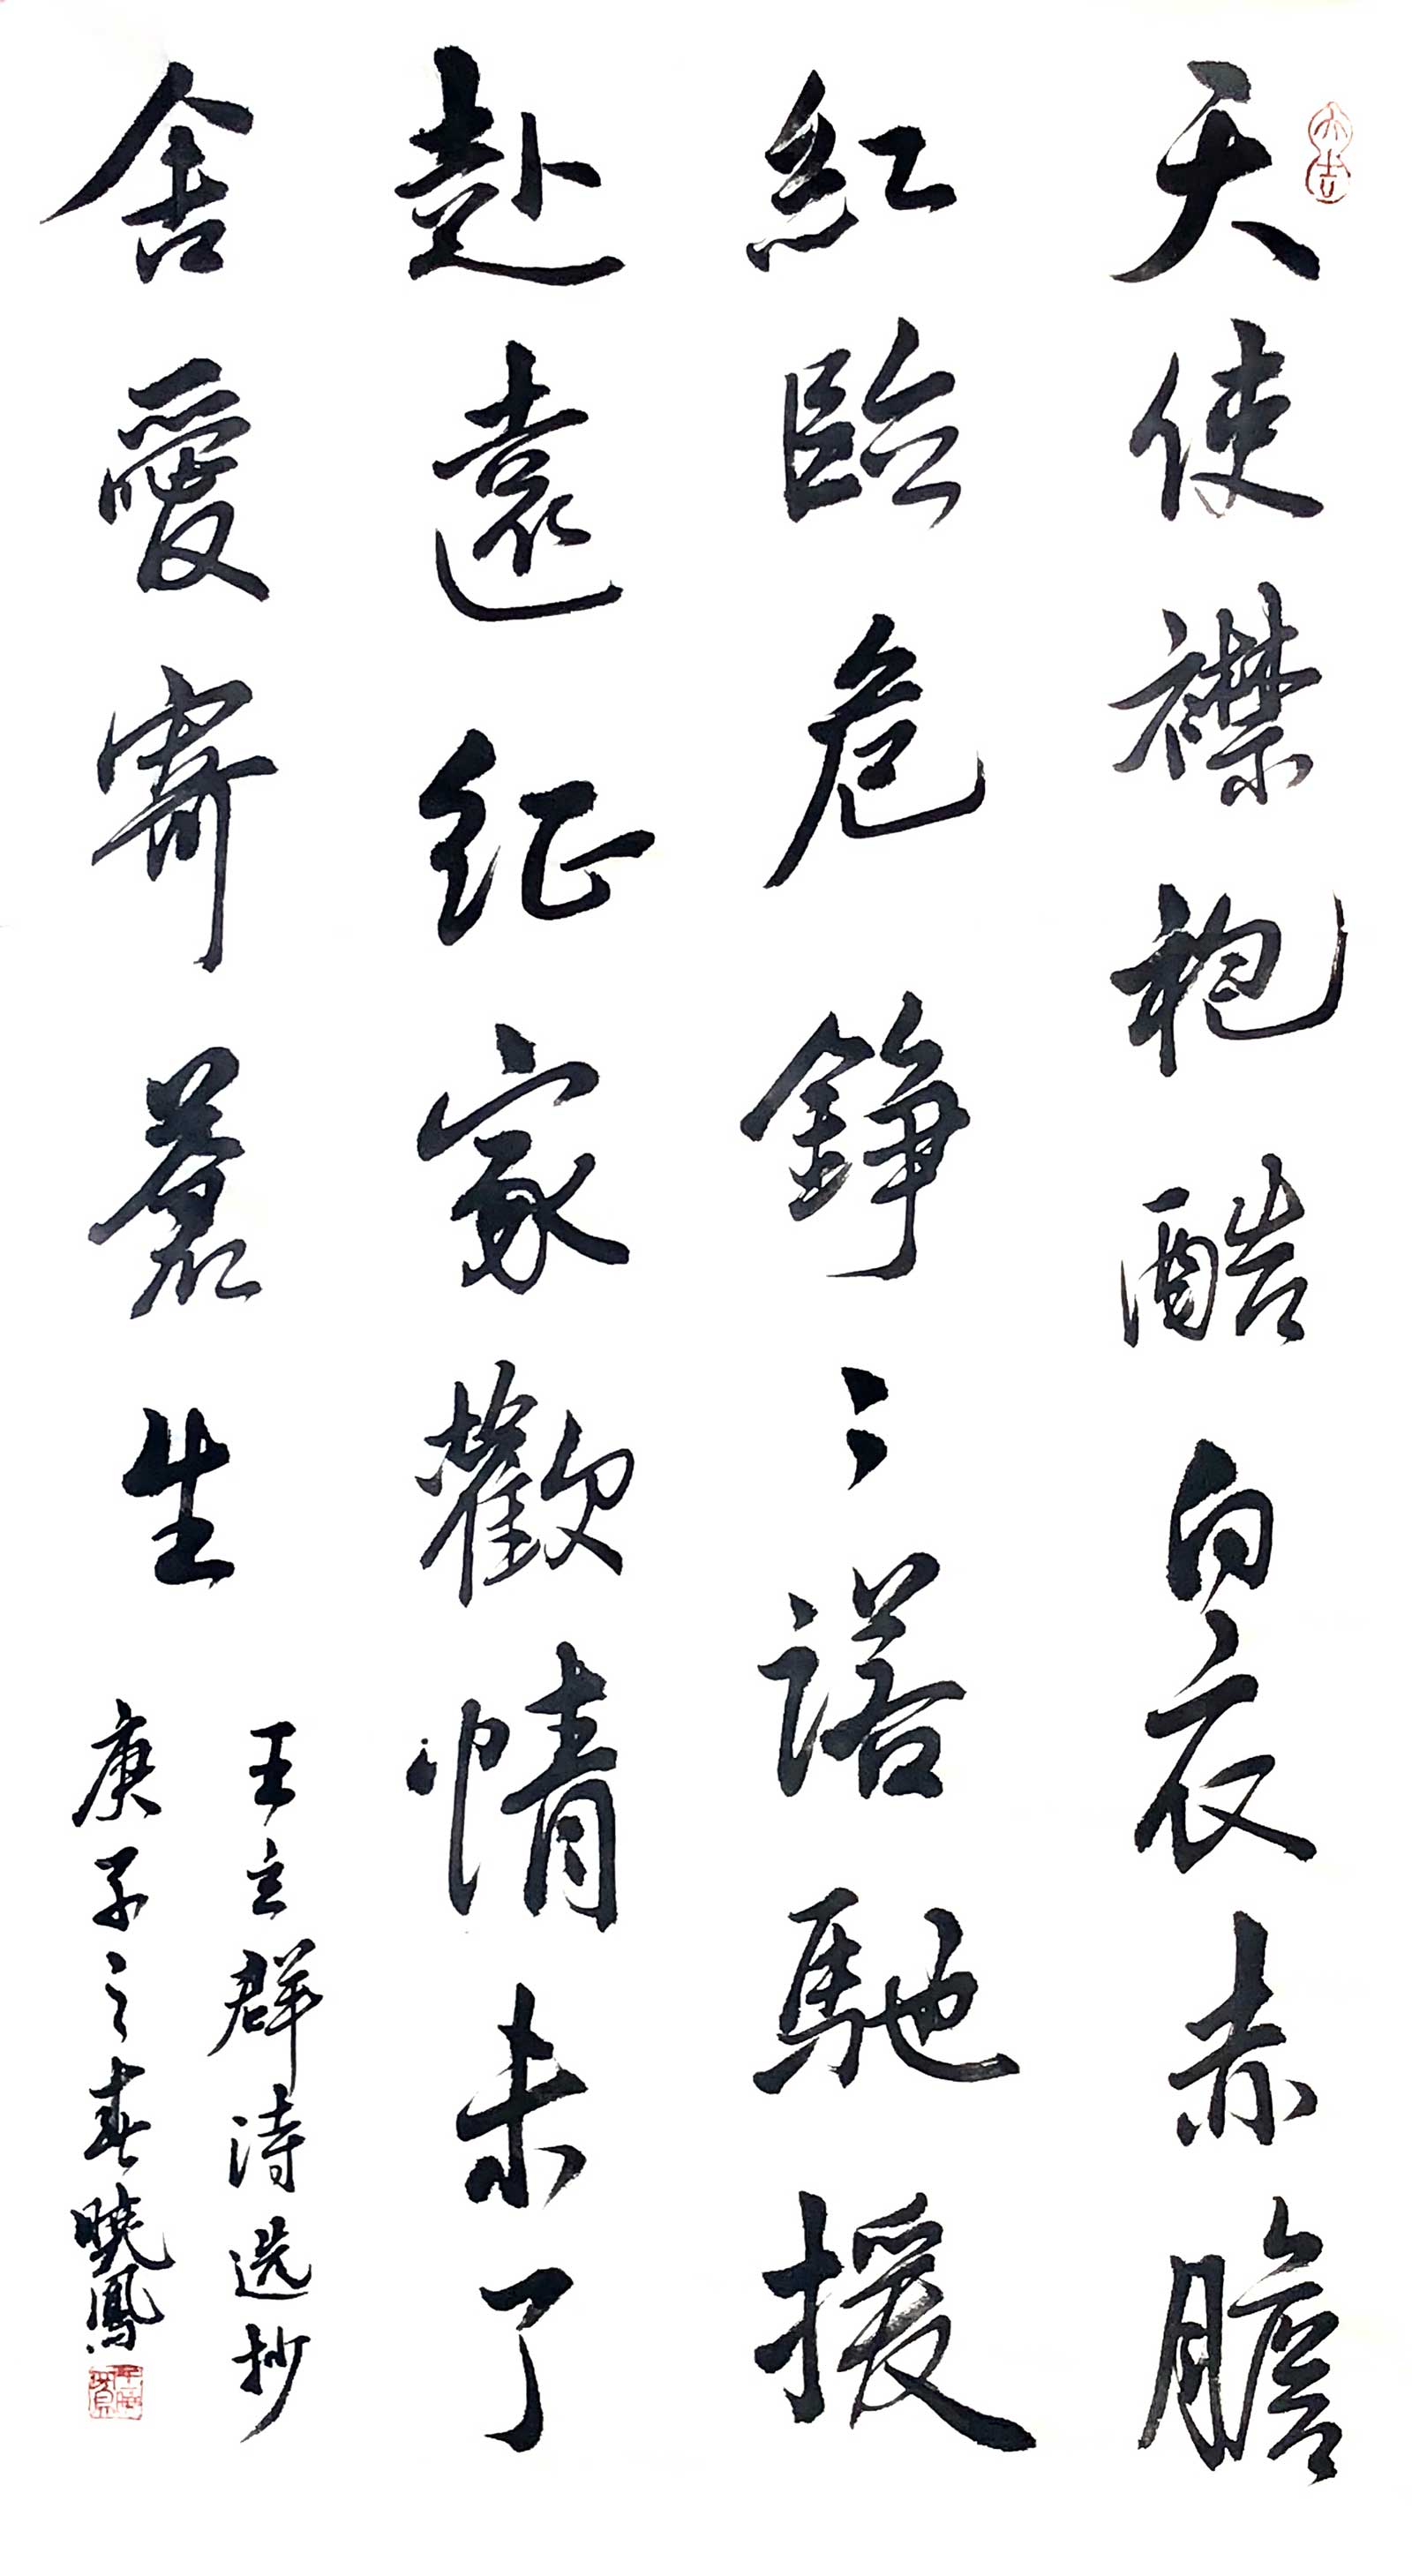 大吉
天使襟袍酷白衣赤膽
紅臨危錚〻諾馳援
赴遠征家歡情未了
舍愛寄蒼生
王立群詩选抄
庚子之春曉鳳